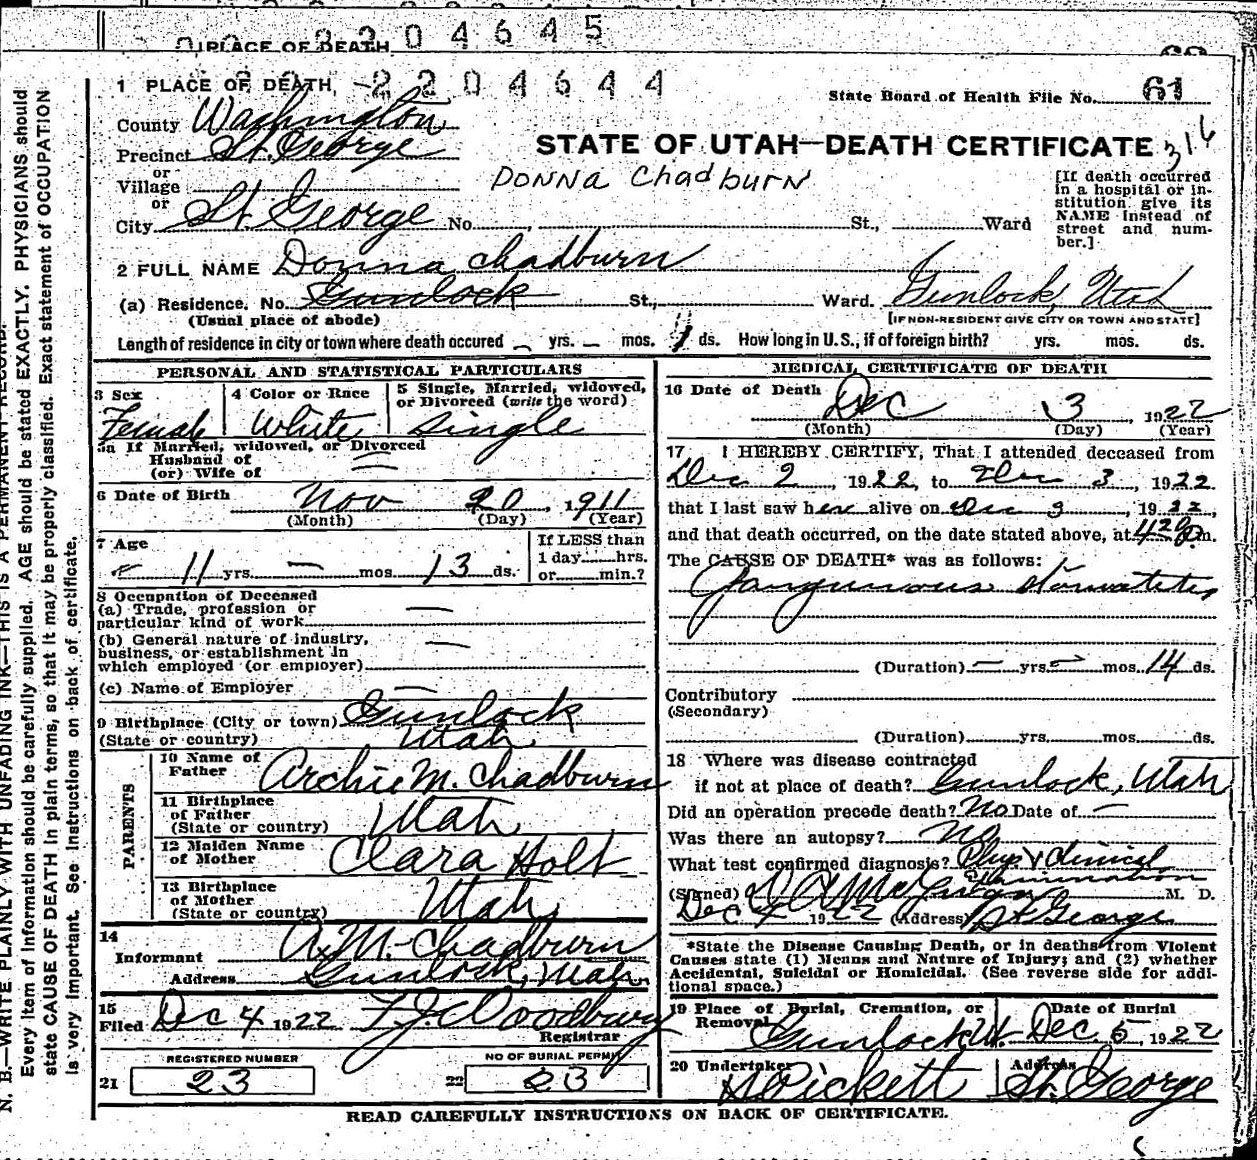 2204645
PLACE OF DEATH
1 PLACE OF DEATH 2204644
State Board of Health File No. 61
County Washington
Precinct St. George
or
Village
or
City St. George No. St., Ward
STATE OF UTAH—DEATH CERTIFICATE 316
DONNA Chadburn
[If death occurred
in a hospital or in-
stitution give its
NAME instead of
street and num-
ber.]
2 FULL NAME Donna Chadburn
(a) Residence. No. Gunlock St., Ward. Gunlock, Utah
(Usual place of abode) [IF NON-RESIDENT GIVE CITY OR TOWN AND STATE]
Length of residence in city or town where death occured — yrs. — mos. 1 ds. How long in U. S., if of foreign birth? yrs. mos. ds.
PERSONAL AND STATISTICAL PARTICULARS
3 Sex
Female
4 Color or Race
White
5 Single, Married, widowed,
or Divorced (write the word)
Single
5a If Married, widowed, or Divorced
Husband of
(or) Wife of —
6 Date of Birth Nov 20, 1911
(Month) (Day) (Year)
7 Age
11 yrs. — mos. 13 ds.
If LESS than
1 day hrs.
or min.?
8 Occupation of Deceased
(a) Trade, profession or
particular kind of work —
(b) General nature of industry,
business, or establishment in
which employed (or employer) —
(c) Name of Employer —
9 Birthplace (City or town) Gunlock
(State or country) Utah
PARENTS
10 Name of
Father Archie M. Chadburn
11 Birthplace
of Father
(State or country) Utah
12 Maiden Name
of Mother Clara Holt
13 Birthplace
of Mother
(State or country) Utah
14
Informant A. M. Chadburn
Address Gunlock, Utah
15
Filed Dec 4 1922 F. J. Woodbury
Registrar
REGISTERED NUMBER NO OF BURIAL PERMIT
21 23 22 23
MEDICAL CERTIFICATE OF DEATH
16 Date of Death Dec 3, 1922
(Month) (Day) (Year)
17 I HEREBY CERTIFY, That I attended deceased from
Dec 2, 1922, to Dec 3, 1922
that I last saw her alive on Dec 3, 1922,
and that death occurred, on the date stated above, at 4 20 P.m.
The CAUSE OF DEATH* was as follows:
Gangrenous Stomatitis
(Duration) — yrs. — mos. 14 ds.
Contributory
(Secondary)
(Duration) yrs. mos. ds.
18 Where was disease contracted
if not at place of death? Gunlock, Utah
Did an operation precede death? No Date of —
Was there an autopsy? No
What test confirmed diagnosis? Phys & Clinical
Examination
(Signed) M. D.
Dec 4 1922 (Address) St George
*State the Disease Causing Death, or in deaths from Violent
Causes state (1) Means and Nature of Injury; and (2) whether
Accidental, Suicidal or Homicidal. (See reverse side for addi-
tional space.)
19 Place of Burial, Cremation, or
Removal Gunlock Ut.
Date of Burial
Dec. 5, 1922
20 Undertaker Pickett
Address St. George
READ CAREFULLY INSTRUCTIONS ON BACK OF CERTIFICATE.
N. B.—WRITE PLAINLY WITH UNFADING INK—THIS IS A PERMANENT RECORD.
Every item of information should be carefully supplied. AGE should be stated EXACTLY. PHYSICIANS should
state CAUSE OF DEATH in plain terms, so that it may be properly classified. Exact statement of OCCUPATION
is very important. See instructions on back of certificate.